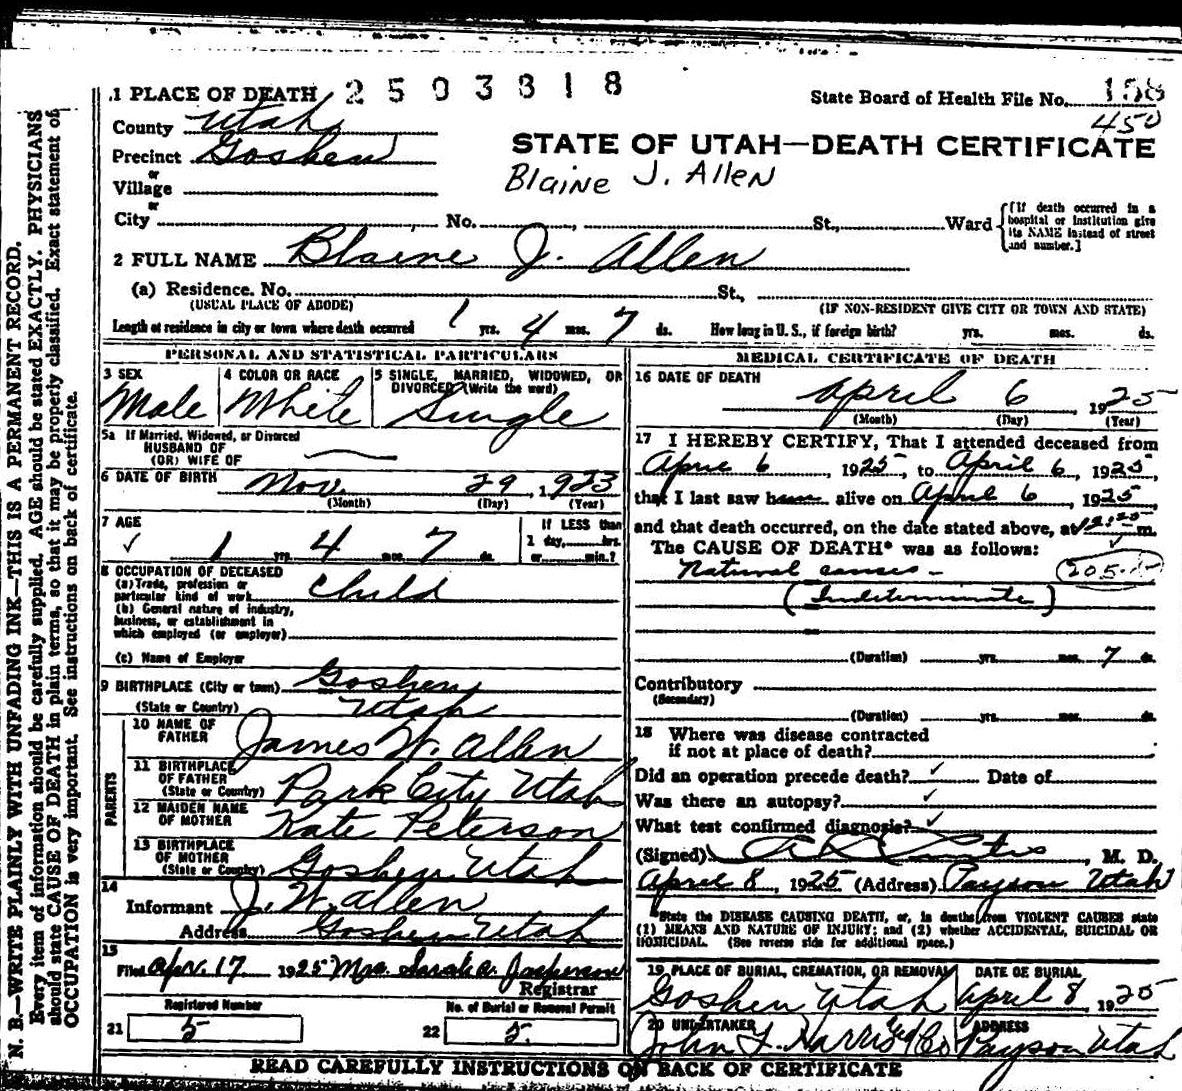 1 PLACE OF DEATH 2503818
State Board of Health File No. 158
450
County Utah
STATE OF UTAH—DEATH CERTIFICATE
Precinct Goshen
or
Village
Blaine J. Allen
or
City , No. , St., Ward
[If death occurred in a hospital or institution give its NAME instead of street and number.]
2 FULL NAME Blaine J. Allen
(a) Residence. No. St.,
(USUAL PLACE OF ABODE) (IF NON-RESIDENT GIVE CITY OR TOWN AND STATE)
Length of residence in city or town where death occurred 1 yrs. 4 mos. 7 ds. How long in U. S., if foreign birth? yrs. mos. ds.
PERSONAL AND STATISTICAL PARTICULARS
3 SEX 4 COLOR OR RACE 5 SINGLE, MARRIED, WIDOWED, OR
DIVORCED (Write the word)
Male White Single
5a If Married, Widowed, or Divorced
HUSBAND OF
(OR) WIFE OF
6 DATE OF BIRTH Nov. 29, 1923
(Month) (Day) (Year)
7 AGE If LESS than
1 day, hrs.
1 yrs. 4 mos. 7 ds. or min.?
8 OCCUPATION OF DECEASED
(a) Trade, profession or
particular kind of work Child
(b) General nature of industry,
business, or establishment in
which employed (or employer)
(c) Name of Employer
9 BIRTHPLACE (City or town) Goshen
(State or Country) Utah
PARENTS
10 NAME OF
FATHER James W. Allen
11 BIRTHPLACE
OF FATHER
(State or Country) Park City Utah
12 MAIDEN NAME
OF MOTHER Kate Peterson
13 BIRTHPLACE
OF MOTHER
(State or Country) Goshen Utah
14
Informant J. W. Allen
Address Goshen Utah
15
Filed Apr. 17 1925 Mrs. Sarah A.
Registrar
Registered Number No. of Burial or Removal Permit
21 5 22 5.
MEDICAL CERTIFICATE OF DEATH
16 DATE OF DEATH
April 6 1925
(Month) (Day) (Year)
17 I HEREBY CERTIFY, That I attended deceased from
April 6, 1925, to April 6, 1925
that I last saw h alive on April 6, 1925,
and that death occurred, on the date stated above, at m.
The CAUSE OF DEATH* was as follows:
Natural causes - 205
(Indeterminate)
(Duration) yrs. mos. 7 ds.
Contributory
(Secondary)
(Duration) yrs. mos. ds.
18 Where was disease contracted
if not at place of death?
Did an operation precede death? Date of
Was there an autopsy?
What test confirmed diagnosis?
(Signed) , M. D.
April 8, 1925 (Address) Payson Utah
*State the DISEASE CAUSING DEATH, or, in deaths from VIOLENT CAUSES state
(1) MEANS AND NATURE OF INJURY; and (2) whether ACCIDENTAL, SUICIDAL OR
HOMICIDAL. (See reverse side for additional space.)
19 PLACE OF BURIAL, CREMATION, OR REMOVAL DATE OF BURIAL
Goshen Utah April 8 1925
20 UNDERTAKER ADDRESS
John L. Co Payson Utah
READ CAREFULLY INSTRUCTIONS ON BACK OF CERTIFICATE
N. B.—WRITE PLAINLY WITH UNFADING INK—THIS IS A PERMANENT RECORD.
Every item of information should be carefully supplied. AGE should be stated EXACTLY. PHYSICIANS
should state CAUSE OF DEATH in plain terms, so that it may be properly classified. Exact statement of
OCCUPATION is very important. See instructions on back of certificate.